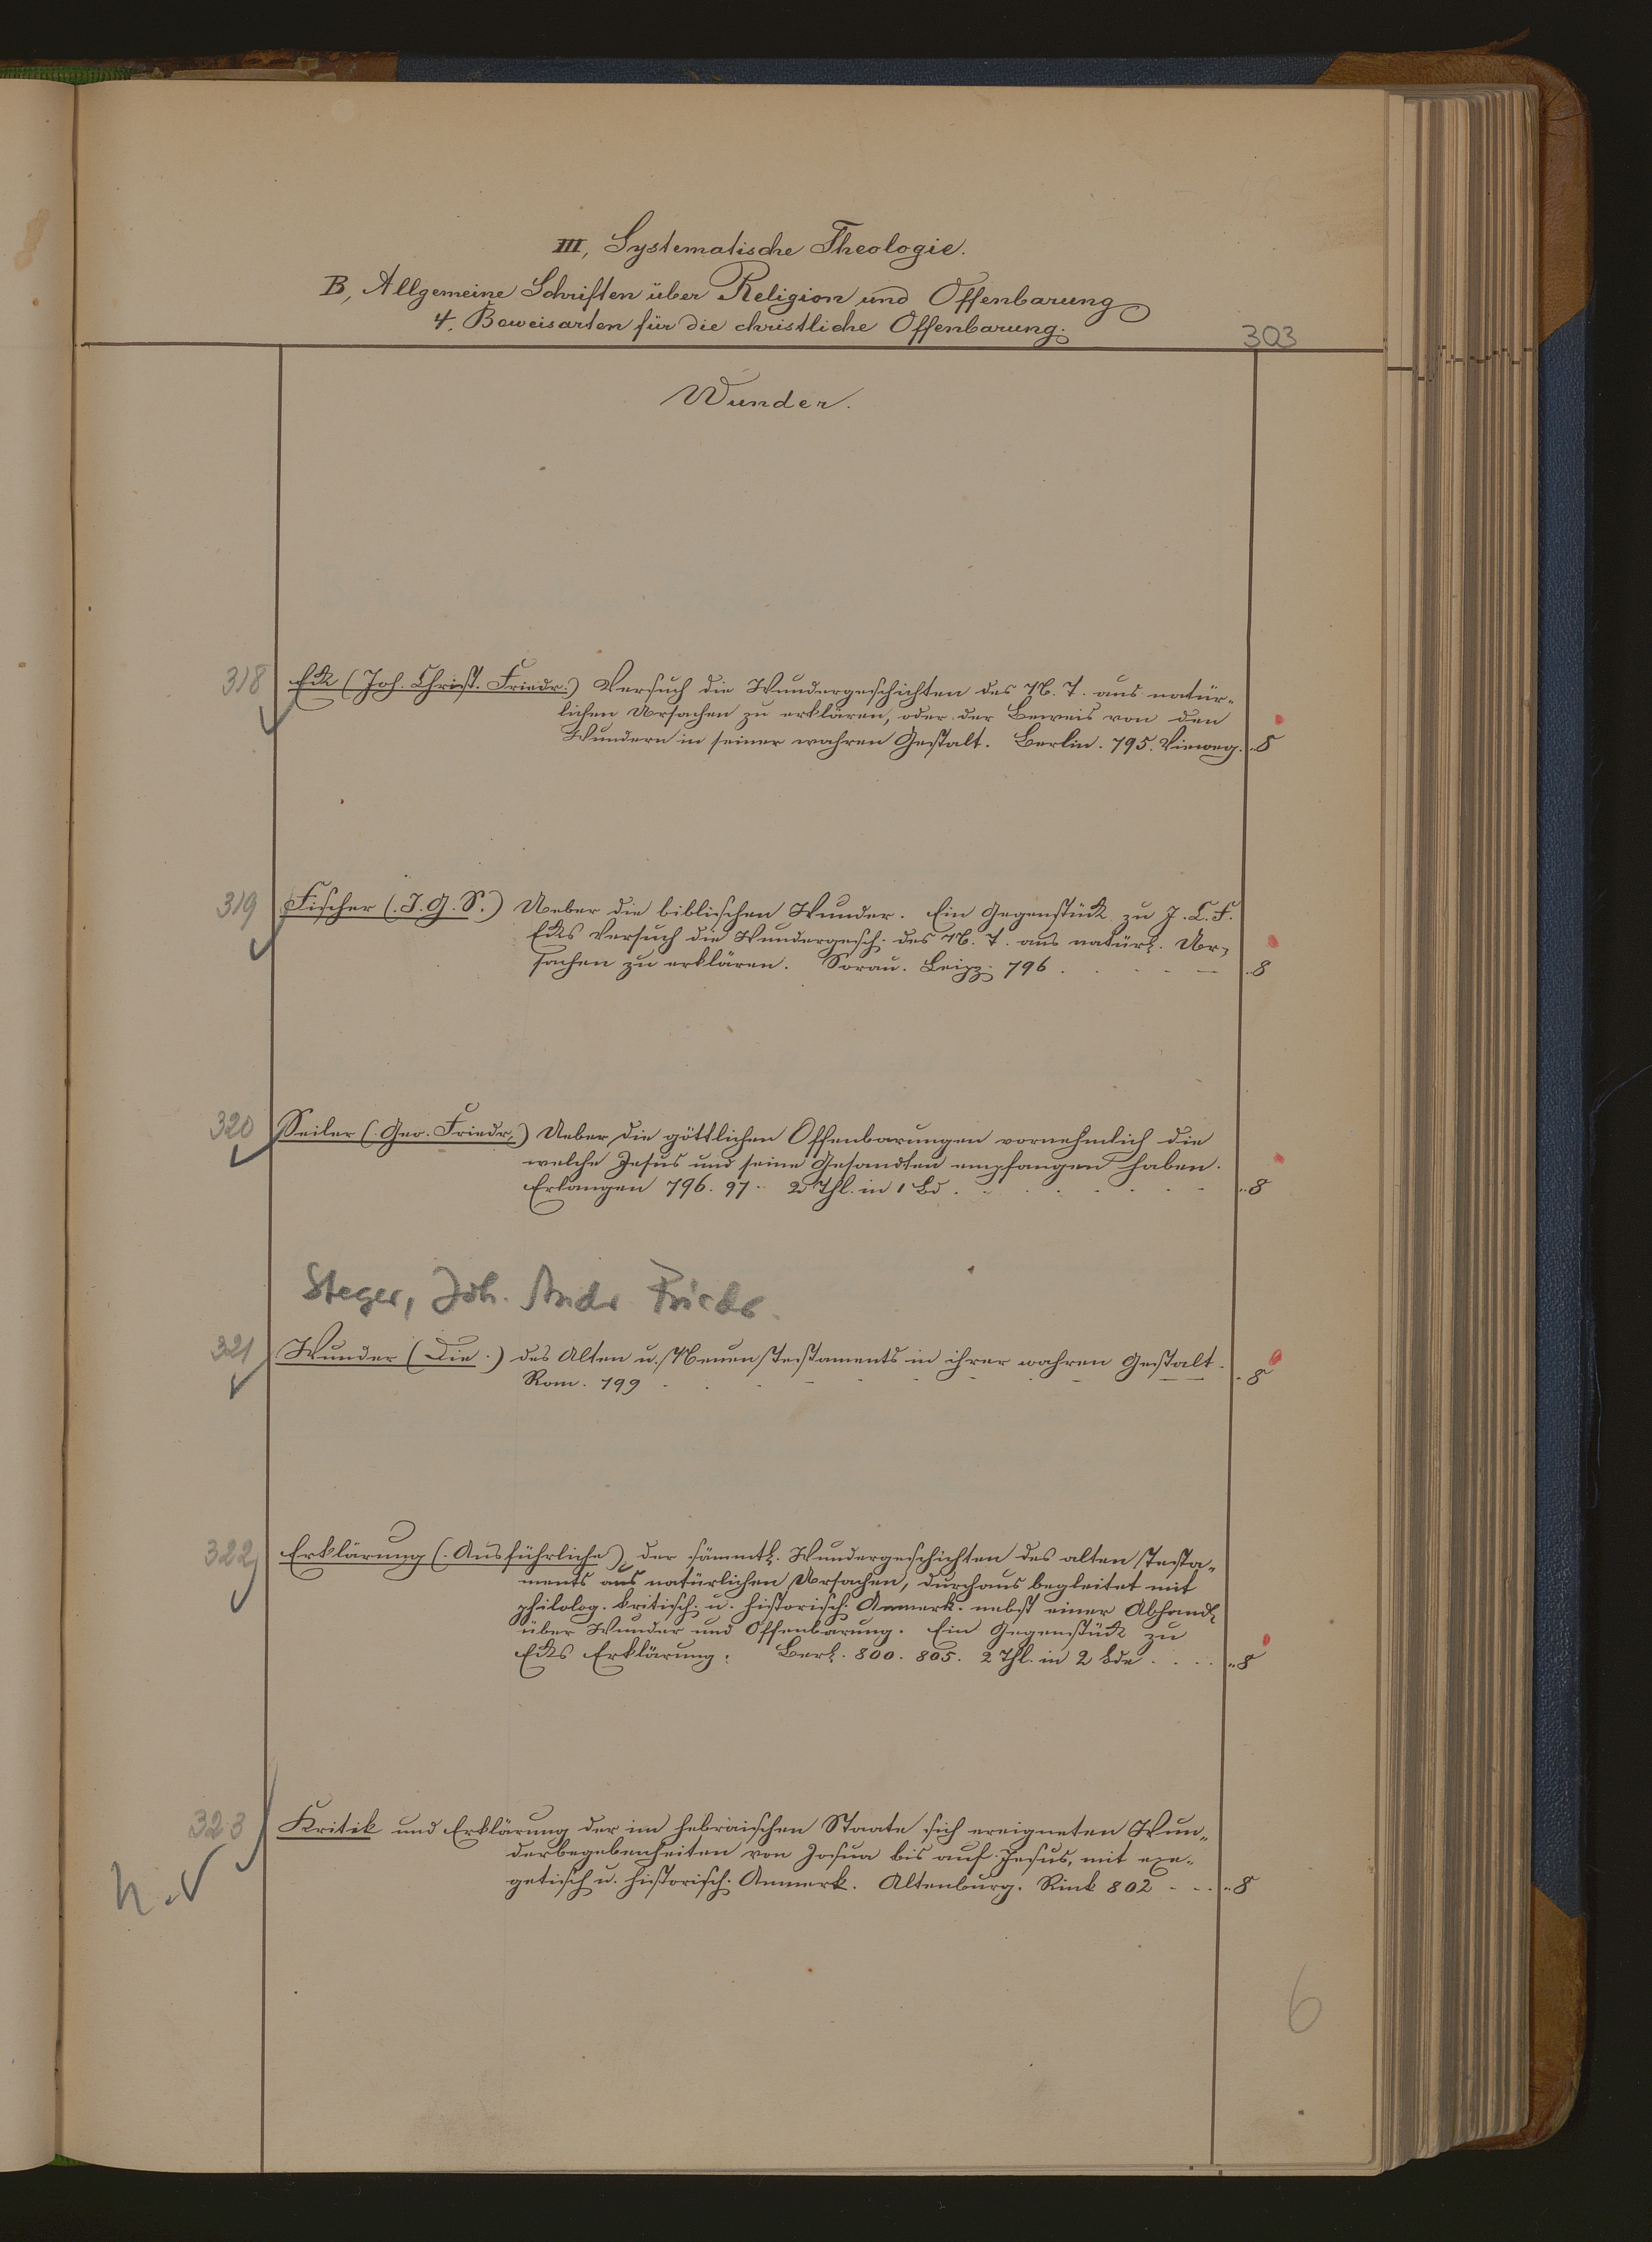 III, Systematische Theologie.
B, Allgemeine Schriften über Religion und Offenbarung
4. Beweisarten für die christliche Offenbarung.
303
Wunder.
318 Eck (Joh. Christ. Friedr.) Versuch die Wundergeschichten des N. T. aus natür-
lichen Ursachen zu erklären, oder der Beweis von den
Wundern in seiner wahren Gestalt. Berlin. 795. Vieweg. 8
319 Fischer (J. G. S.) Ueber die biblischen Wunder. Ein Gegenstück zu J. C. F.
Ecks Versuch die Wundergesch. des N. T. aus natürl. Ur-
sachen zu erklären. Sorau. Leipz. 796 . . . . 8
320 Seiler (Geo. Friedr.) Ueber die göttlichen Offenbarungen vornehmlich die
welche Jesus und seine Gesandten empfangen haben.
Erlangen 796. 97. 2 Thl. in 1 Bd . . . . 8
Steger, Joh. Andr. Friedr.
321 Wunder (Die.) des Alten u. Neuen Testaments in ihrer wahren Gestalt.
Rom. 799 . . . . 8
322 Erklärung (Ausführliche) der sämmtl. Wundergeschichten des alten Testa-
ments aus natürlichen Ursachen, durchaus begleitet mit
philolog. kritisch. u. historisch. Anmerk. nebst einer Abhandl.
über Wunder und Offenbarung. Ein Gegenstück zu
Ecks Erklärung. Berl. 800. 805. 2 Thl. in 2 Bde . . . . 8
323 Kritik und Erklärung der im hebraischen Staate sich ereigneten Wun-
derbegebenheiten von Josua bis auf Jesus, mit exe-
getisch u. historisch. Anmerk. Altenburg. Rink 802 . . . 8
n.
6